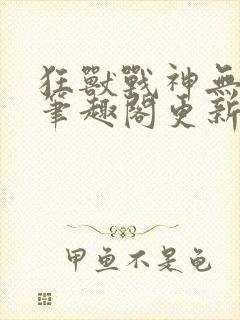 狂獸戰神無
筆趣閣更新
甲鱼不是龟